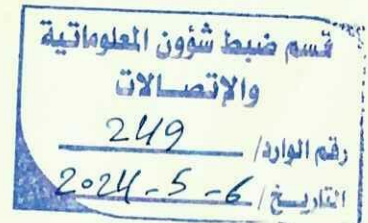 قسم ضبط شؤون المعلوماتية
والإتصالات
رقم الوارد/ 249
التاريخ/ 2024-5-6